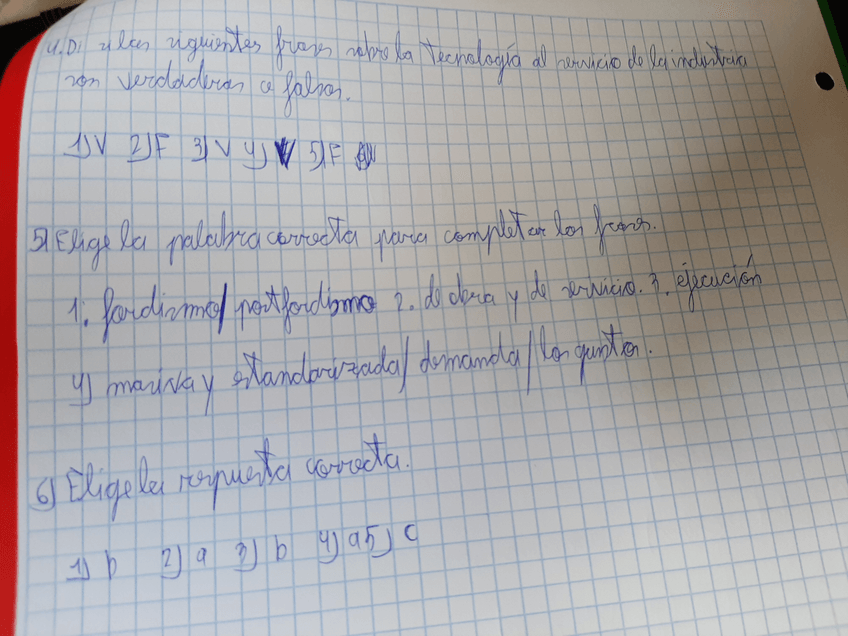 4. Di si las siguientes frases sobre la Tecnología al servicio de la industria
son verdaderas o falsas.
1) V 2) F 3) V 4) V 5) F
5) Elige la palabra correcta para completar las frases.
1. fordismo/ postfordismo 2. de obra y de servicio. 3. ejecución
4) masiva y estandarizada/ demanda/ los gustos.
6) Elige la respuesta correcta.
1) b 2) a 3) b 4) a 5) c